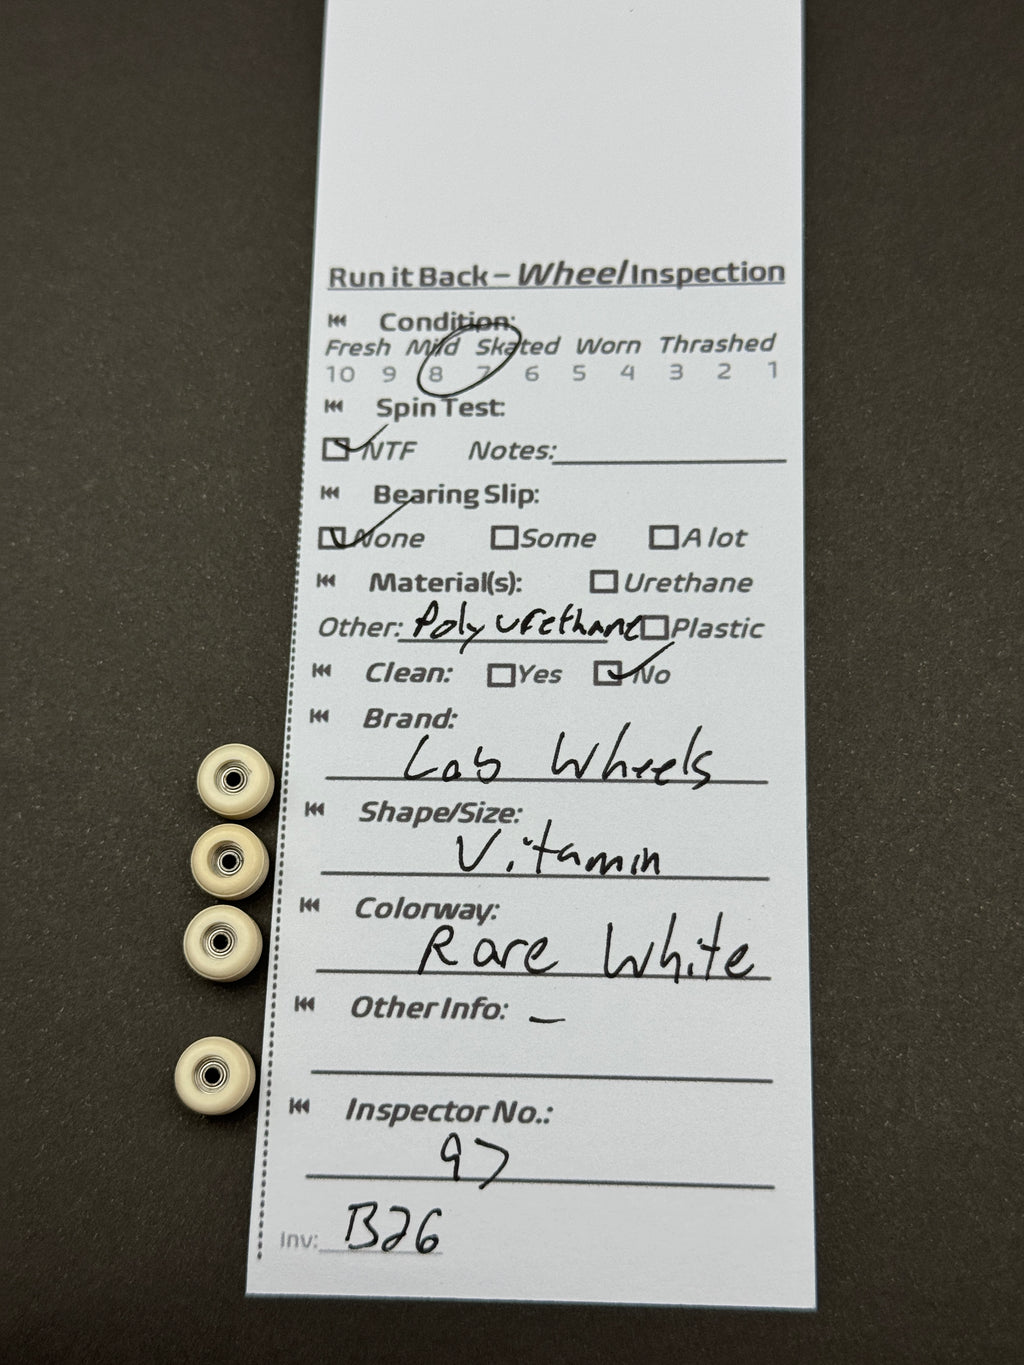 Run it Back – Wheel Inspection
Condition:
Fresh Mild Skated Worn Thrashed
10 9 8 7 6 5 4 3 2 1
Spin Test:
NTF Notes:
Bearing Slip:
None Some A lot
Material(s): Urethane
Other: Polyurethane Plastic
Clean: Yes No
Brand:
Lab Wheels
Shape/Size:
Vitamin
Colorway:
Rare White
Other Info: –
Inspector No.:
97
Inv: B26